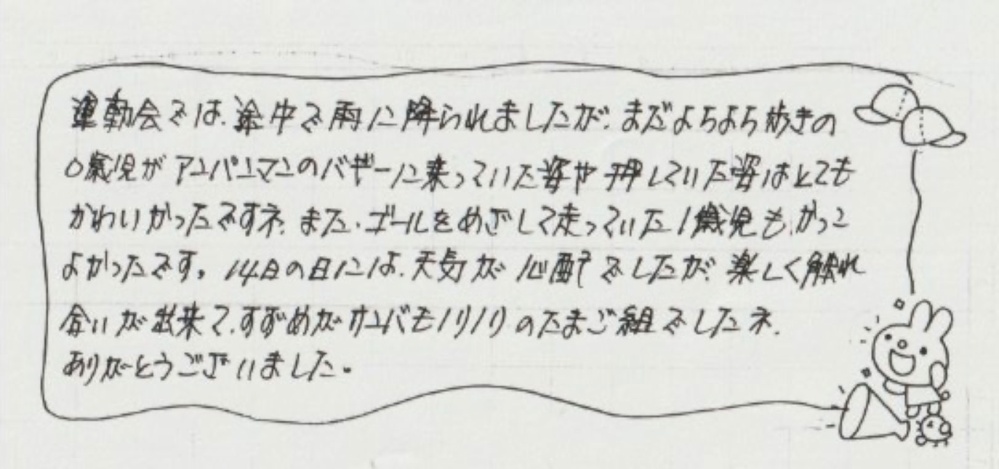 運動会では、途中で雨に降られましたが、まだよちよち歩きの
0歳児がアンパンマンのバギーに乗っていた姿や押していた姿はとても
かわいかったですネ。また、ゴールをめざして走っていた1歳児も、かっこ
よかったです。14日の日には、天気が心配でしたが、楽しく触れ
合いが出来て、すずめがサンバもノリノリのたまご組でしたネ。
ありがとうございました。